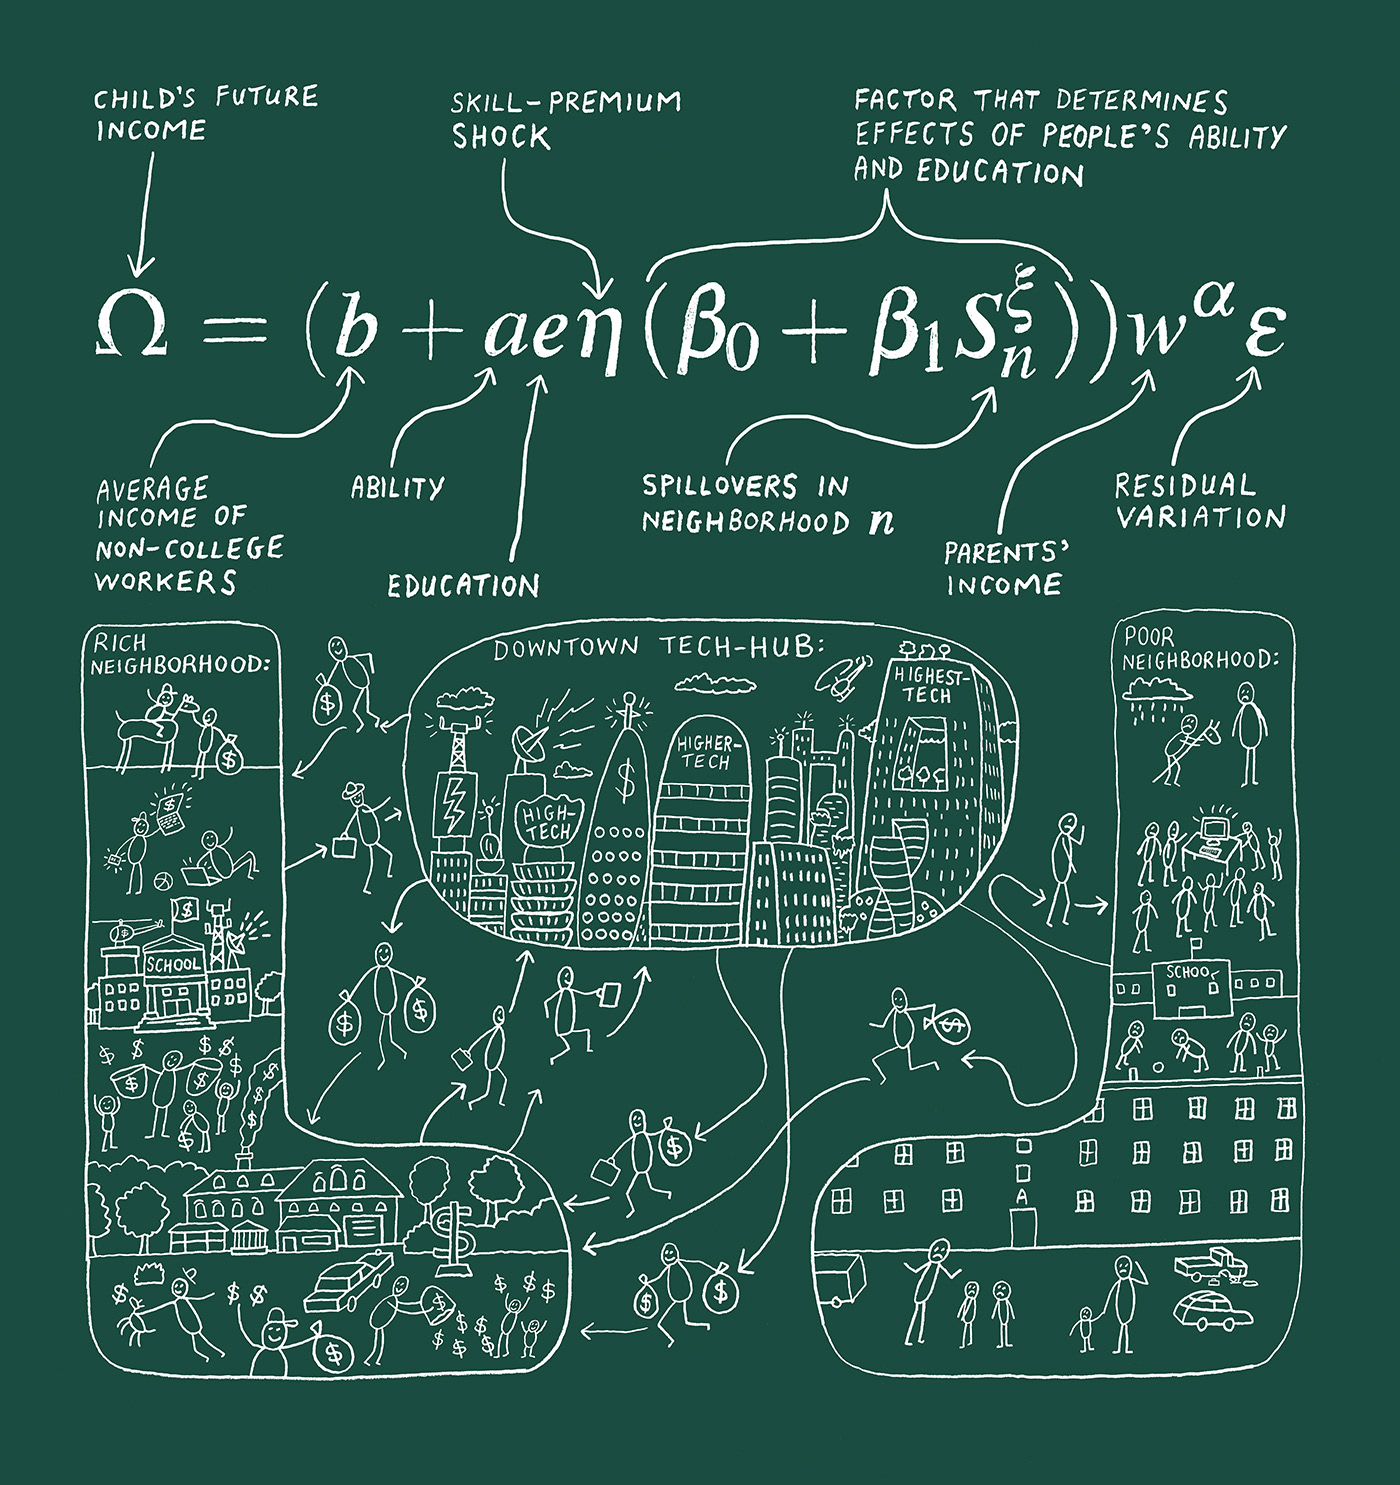 CHILD'S FUTURE
INCOME
SKILL-PREMIUM
SHOCK
FACTOR THAT DETERMINES
EFFECTS OF PEOPLE'S ABILITY
AND EDUCATION
Ω = (b + aeη(β₀ + β₁Sₙ^ξ))w^α ε
AVERAGE
INCOME OF
NON-COLLEGE
WORKERS
ABILITY
EDUCATION
SPILLOVERS IN
NEIGHBORHOOD n
PARENTS'
INCOME
RESIDUAL
VARIATION
RICH
NEIGHBORHOOD:
$
$
$
$
SCHOOL
$ $ $ $ $
$
$
$
$
$
$ $ $
$
$
$
$ $ $ $
$ $ $ $ $ $
$
$
$
DOWNTOWN TECH-HUB:
HIGH-
TECH
$
HIGHER-
TECH
HIGHEST-
TECH
$
$
$
$
$
POOR
NEIGHBORHOOD:
SCHOOL
A